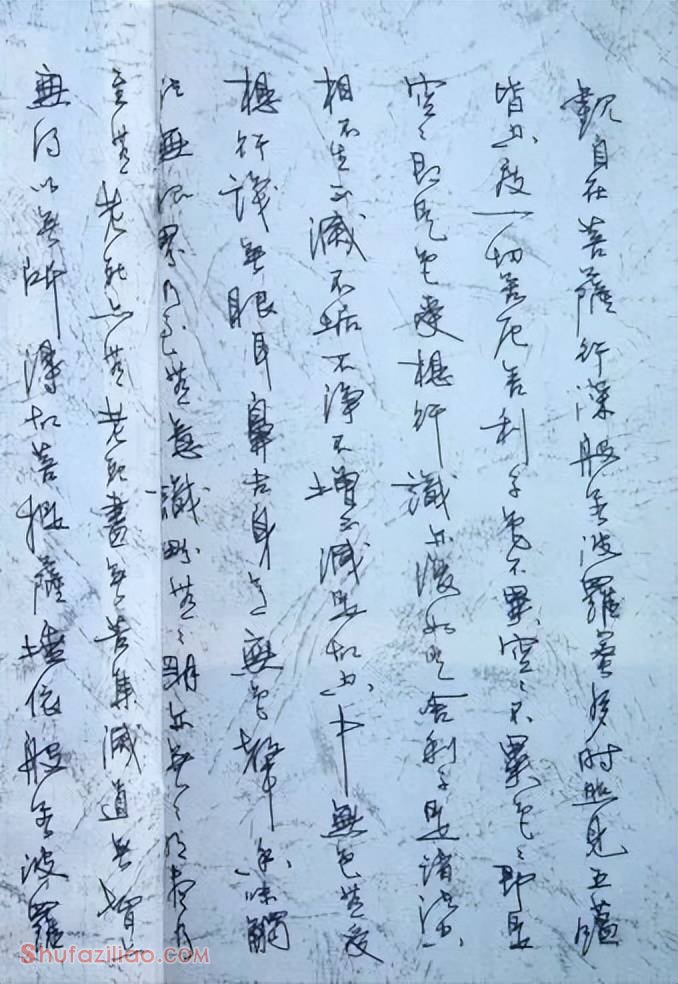 觀自在菩薩行深般若波羅蜜多時照見五蘊
皆空度一切苦厄舍利子色不異空々不異色々即是
空々即是色受想行識亦復如是舍利子是諸法空
相不生不滅不垢不淨不增不減是故空中無色無受
想行識無眼耳鼻舌身意無色聲香味觸
法無眼界乃至無意識界無々明亦無々明盡乃
至無老死亦無老死盡無苦集滅道無智亦
無得以無所得故菩提薩埵依般若波羅
Shufaziliao.com